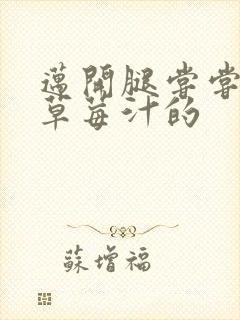 邁開腿嘗嘗
草莓汁的
蘇增福